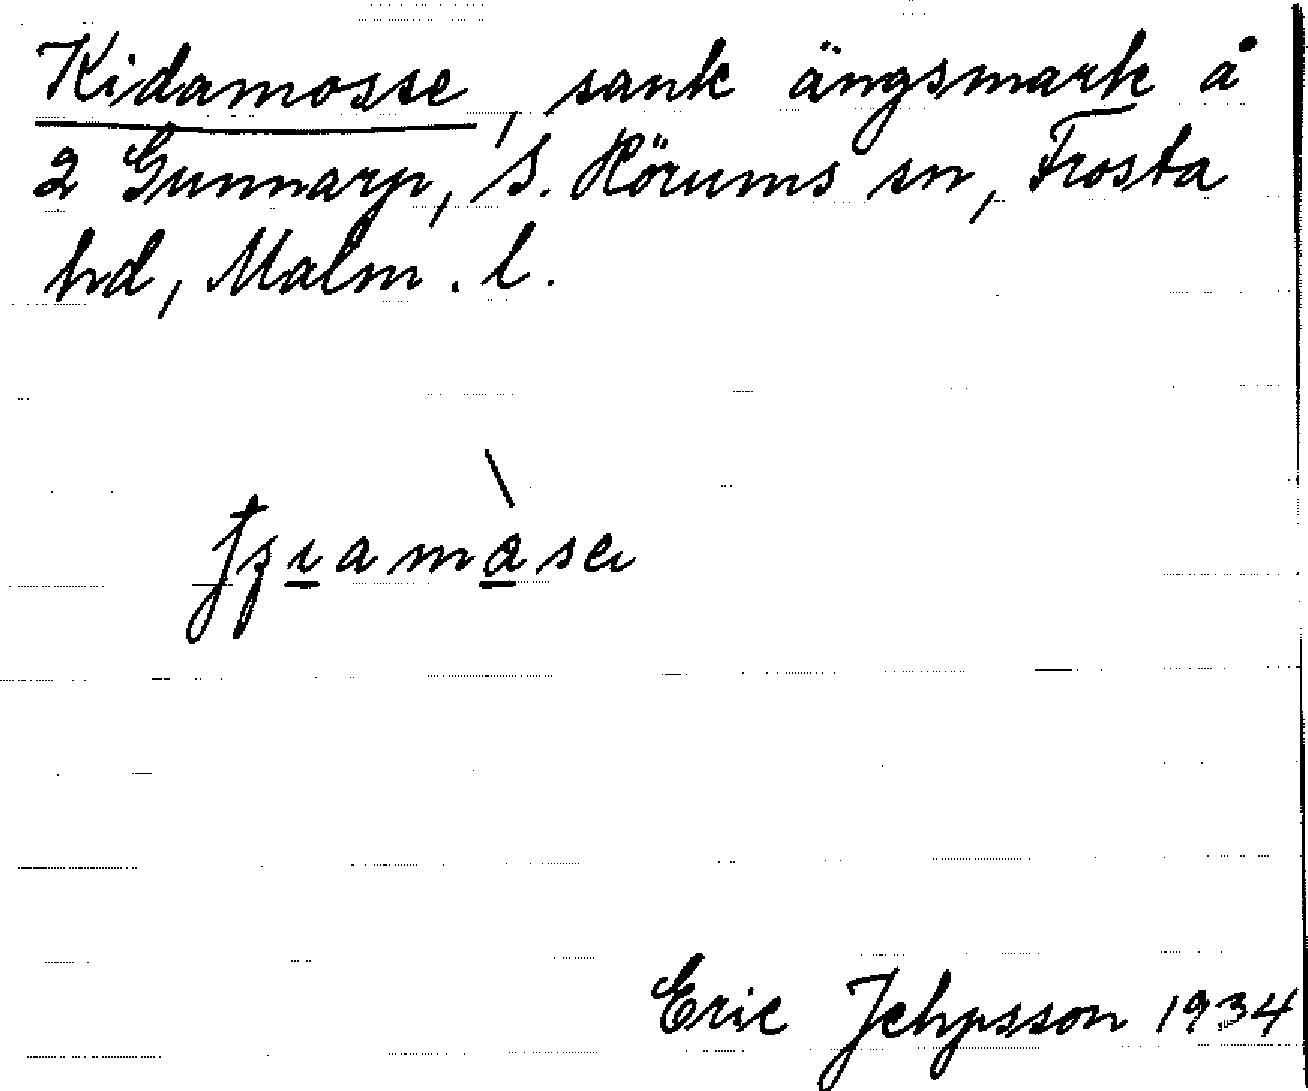 Kidamosse, sank ängsmark å
2 Gunnarp, S. Hörums sn, Frosta
hd, Malm. l.
Eric Jehpsson 1934